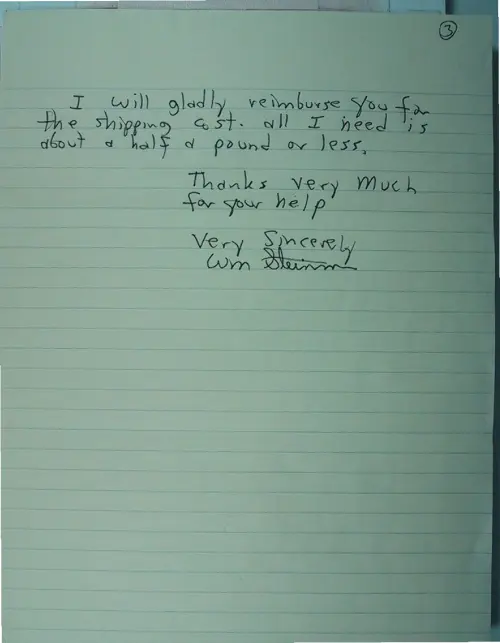 3
I will gladly reimburse you for
the shipping cost. all I need is
about a half a pound or less.
Thanks very much
for your help
Very Sincerely
Wm